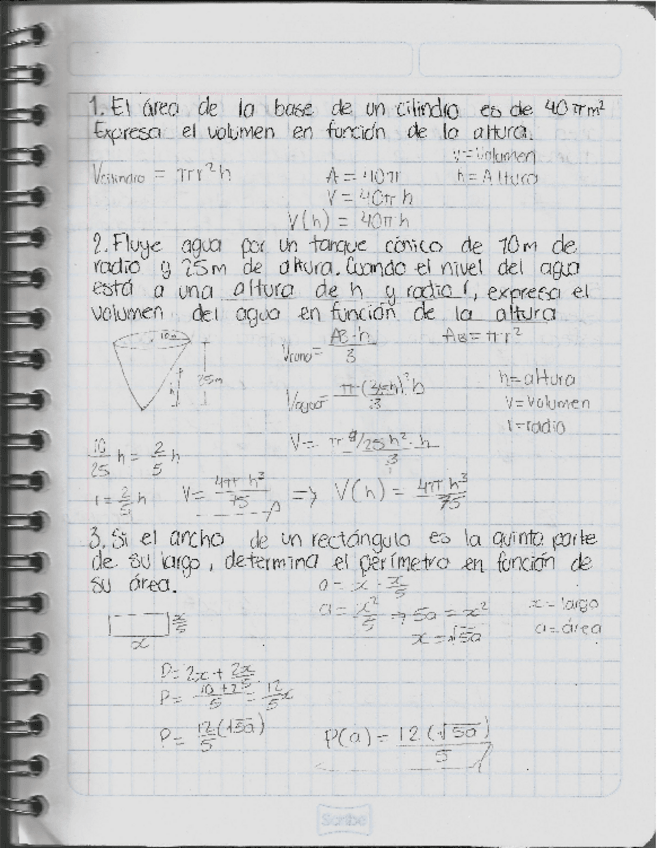 1. El área de la base de un cilindro es de 40πm²
Expresa el volumen en función de la altura.
V=Volumen
Vcilindro = πr²h A = 40π h=Altura
V = 40π h
V(h) = 40π h
2. Fluye agua por un tanque cónico de 10m de
radio y 25m de altura. Cuando el nivel del agua
está a una altura de h y radio r, expresa el
volumen del agua en función de la altura
10m
25m
h
Vcono = AB·h / 3 AB = πr²
h=altura
V=Volumen
r=radio
10/25 h = 2/5 h
r = 2/5 h V = 4π h³/75 => V(h) = 4π h³/75
3. Si el ancho de un rectángulo es la quinta parte
de su largo, determina el perímetro en función de
su área. a = x · x/5
a = x²/5 → 5a = x² x = largo
x = √5a a = área
x/5
x
P = 2x + 2x/5
P = 10+2/5 = 12/5 x
P = 12(√5a)/5 P(a) = 12(√5a)/5
Scribe